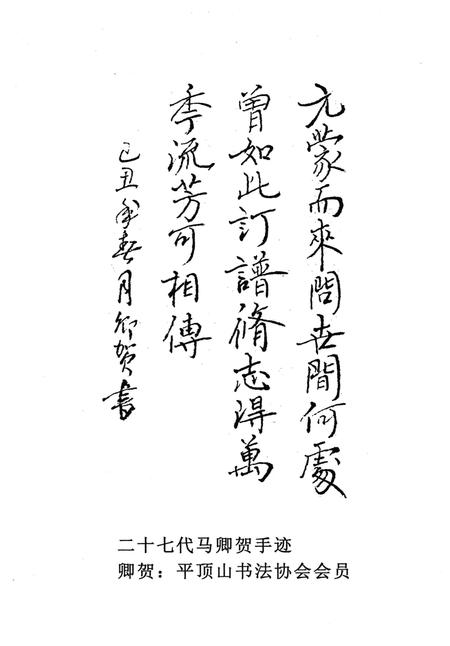 元蒙而來問世間何處
曾如此訂譜脩志得萬
季流芳可相傳
己丑年春月卿贺书
二十七代马卿贺手迹
卿贺：平顶山书法协会会员